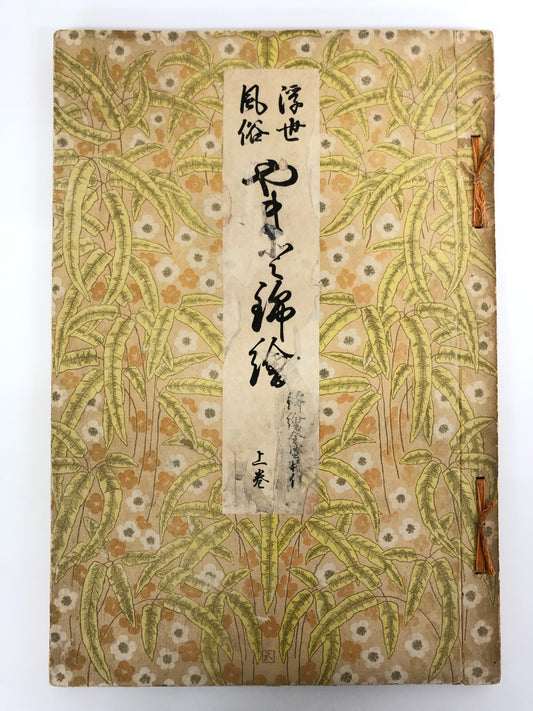 浮世
風俗
やまと錦絵
上巻